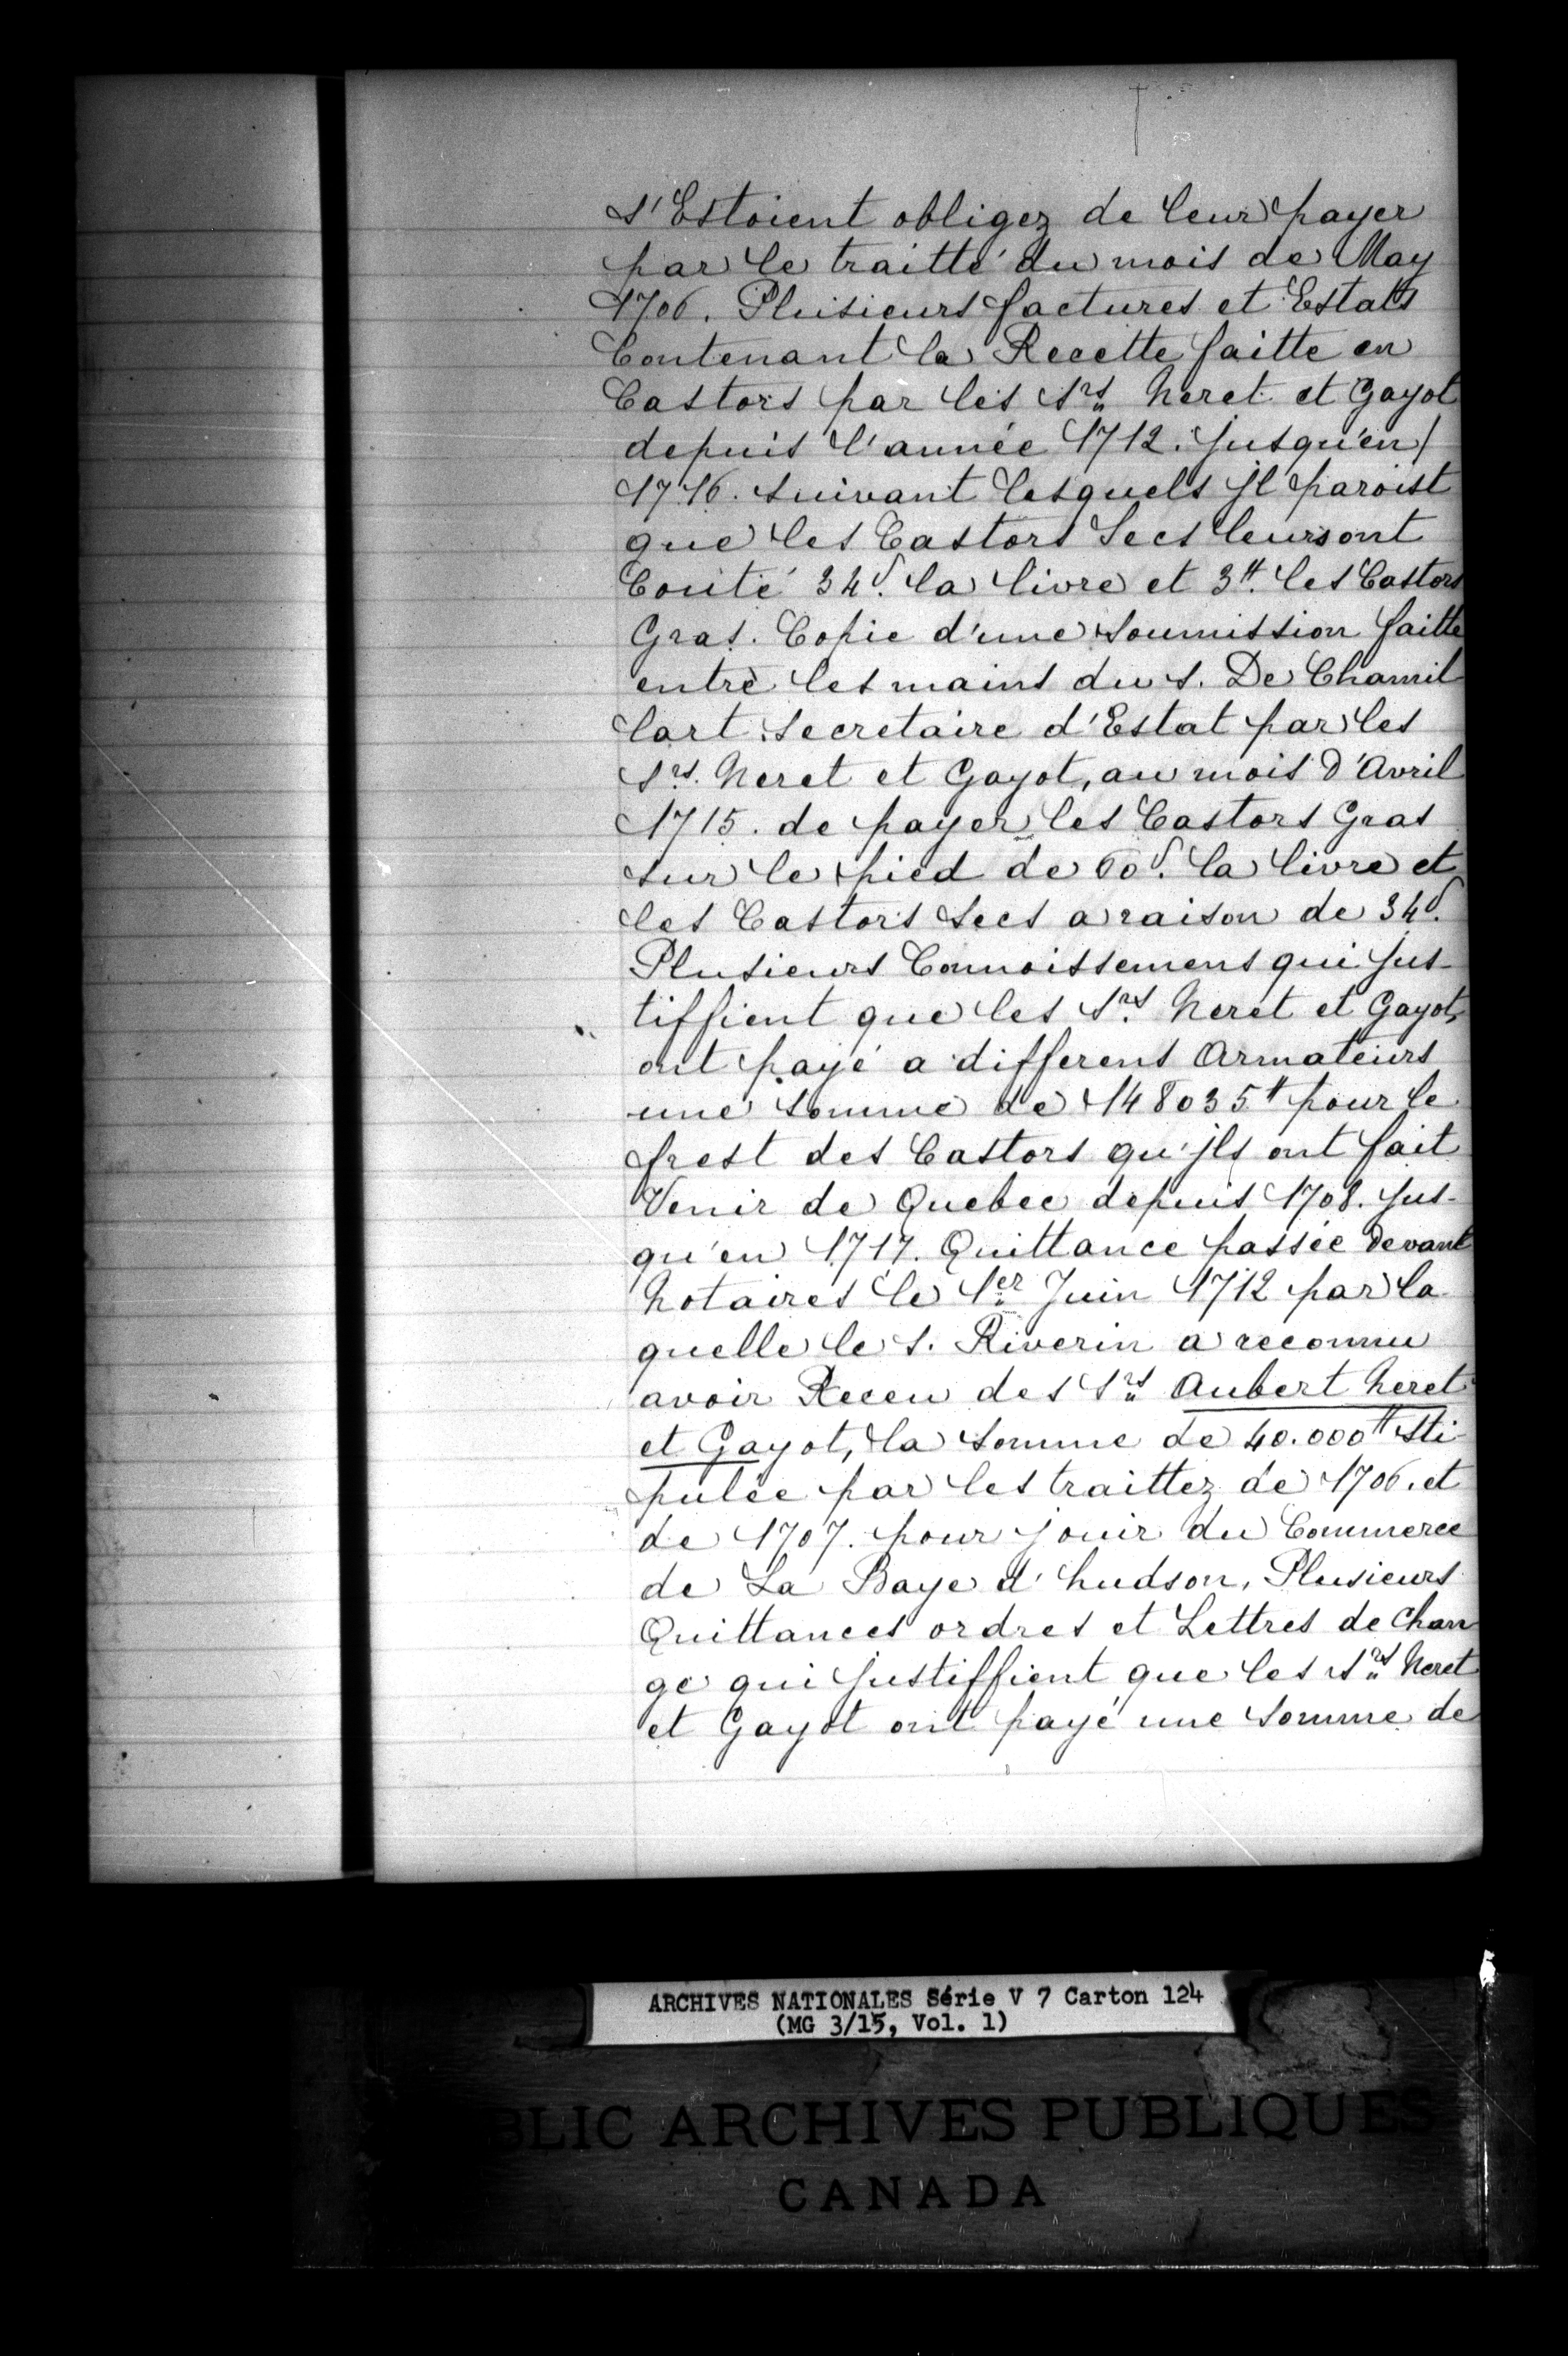 s'Estoient obligez de leur payer
par le traitté du mois de May
1706. Plusieurs factures et Estats
Contenant la Recette faitte en
Castors par les Srs Neret et Gayot
depuis l'année 1712. jusqu'en
1716. suivant lesquels jl paroist
que les Castors Secs leurs ont
Couté 34s. la livre et 3tt. les Castors
Gras. Copie d'une soumission faitte
entre les mains du s. De Chamil
lart secretaire d'Estat par les
Srs. Neret et Gayot, au mois d'Avril
1715. de payer les Castors Gras
sur le pied de 60s. la livre et
les Castors secs a raison de 34s.
Plusieurs Connoissemens qui jus-
tiffient que les Srs Neret et Gayot,
ont payé a differens Armateurs
une somme de 148035tt pour le
frest des Castors qu'jls ont fait
Venir de Quebec depuis 1708. jus-
qu'en 1717. Quittance passée devant
Notaires le 1er Juin 1712 par la
quelle le s. Riverin a reconnu
avoir Receu des Srs Aubert Neret
et Gayot, la somme de 40.000tt sti
pulée par les traittez de 1706. et
de 1707. pour jouir du Commerce
de La Baye d'hudson, Plusieurs
Quittances ordres et Lettres de Chan
ge qui justiffient que les Srs Neret
et Gayot ont payé une somme de
ARCHIVES NATIONALES Série V 7 Carton 124
(MG 3/15, Vol. 1)
BLIC ARCHIVES PUBLIQUES
CANADA